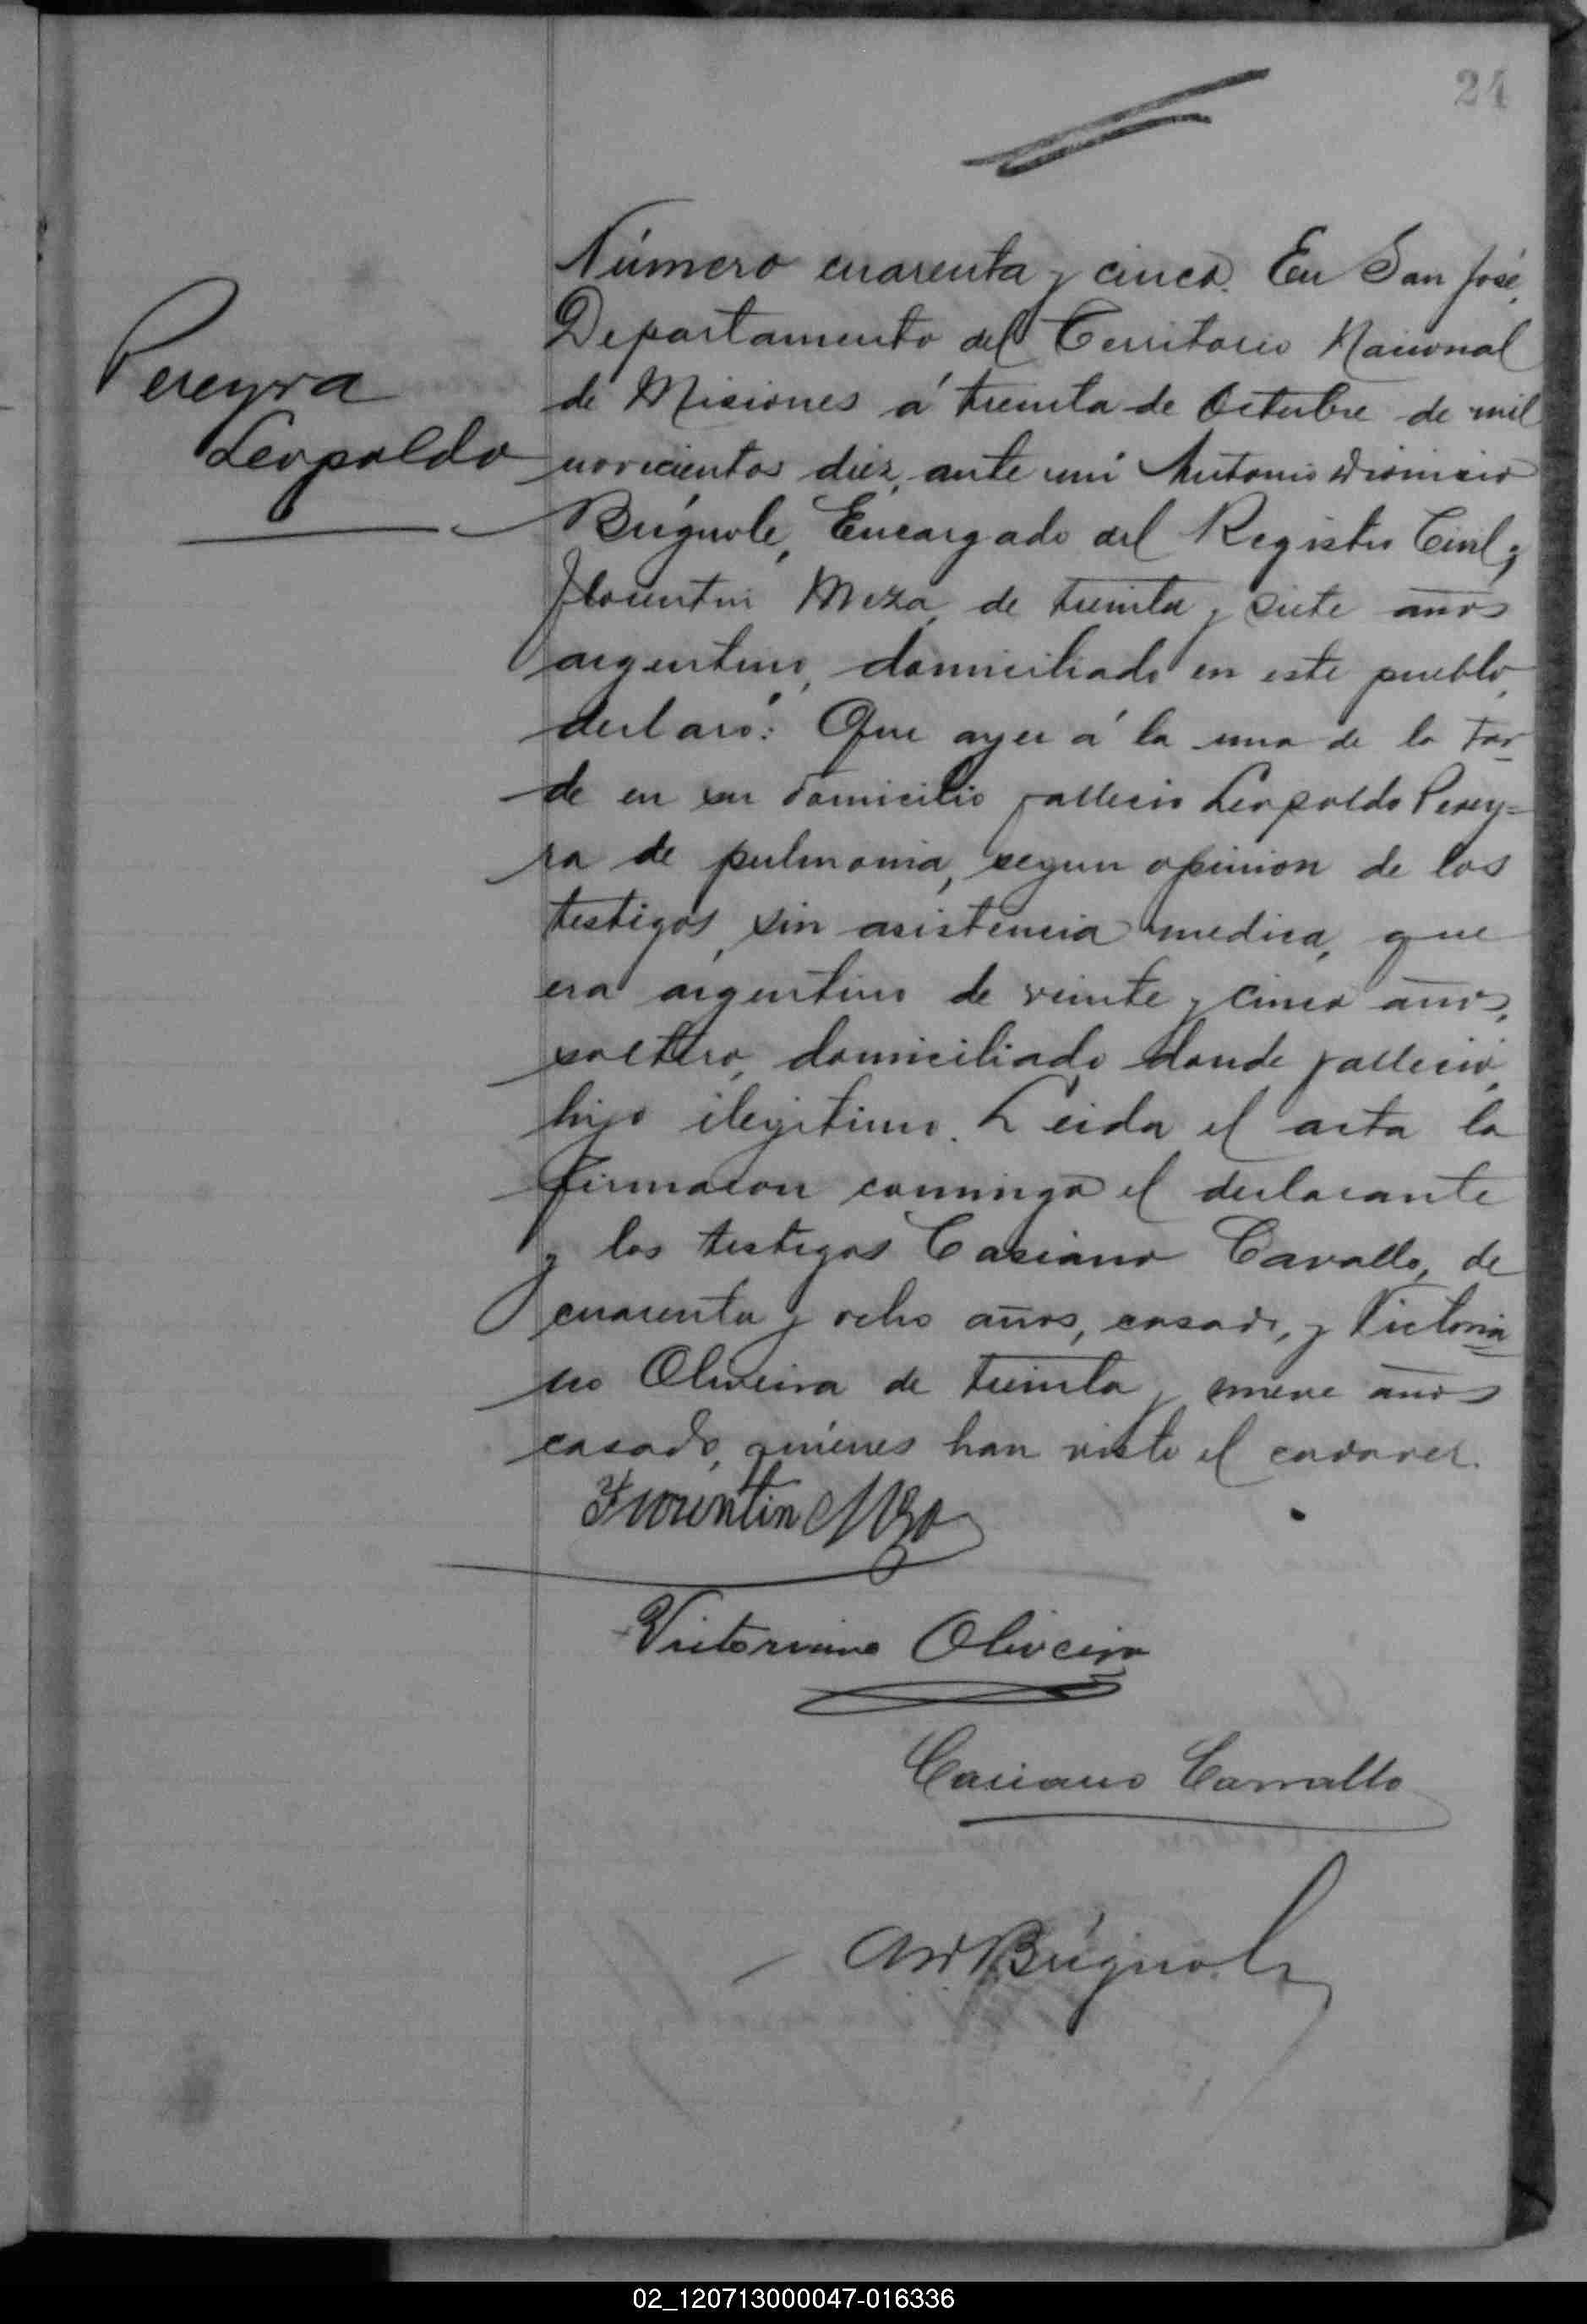 24
Número cuarenta y cinco. En San José,
Departamento del Territorio Nacional
de Misiones á treinta de Octubre de mil
novecientos diez, ante mí Antonio Dionisio
Brignole, Encargado del Registro Civil,
Florentin Meza, de treinta y siete años
argentino, domiciliado en este pueblo,
declaró: Que ayer á la una de la tar
de en su domicilio falleció Leopoldo Perey=
ra de pulmonia, segun opinion de los
testigos, sin asistencia medica, que
era argentino de veinte y cinco años,
soltero, domiciliado donde falleció,
hijo ilegitimo. Leida el acta la
firmaron conmigo el declarante
y los testigos Casiano Cavallo, de
cuarenta y ocho años, casado, y Victoria
no Oliveira de treinta y nueve años
casado, quienes han visto el cadaver.
Pereyra
Leopoldo
Florentin Meza
Victoriano Oliveira
Casiano Carvallo
AD Brignole
02_120713000047-016336